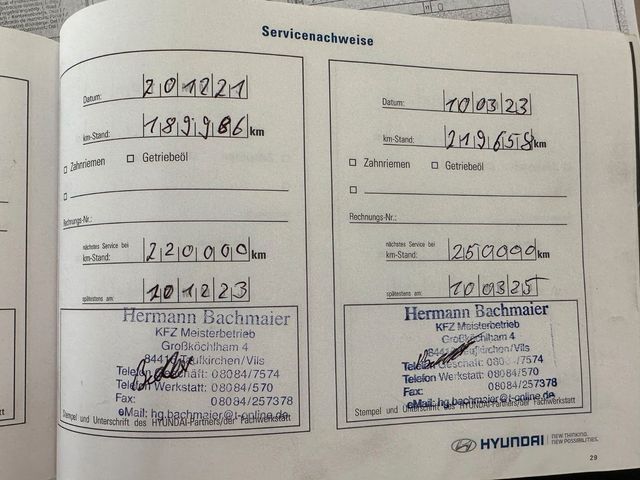 Servicenachweise
Datum: 201221
km-Stand: 189986 km
Zahnriemen Getriebeöl
Rechnungs-Nr.:
nächstes Service bei
km-Stand: 220000 km
spätestens am: 201223
Hermann Bachmaier
KFZ Meisterbetrieb
Großköchlham 4
84416 Taufkirchen/Vils
Telefon Geschäft: 08084/7574
Telefon Werkstatt: 08084/570
Fax: 08084/257378
eMail: hg.bachmaier@t-online.de
Stempel und Unterschrift des HYUNDAI-Partners/der Fachwerkstatt
Datum: 100323
km-Stand: 219658 km
Zahnriemen Getriebeöl
Rechnungs-Nr.:
nächstes Service bei
km-Stand: 250000 km
spätestens am: 100325
Hermann Bachmaier
KFZ Meisterbetrieb
Großköchlham 4
84416 Taufkirchen/Vils
Telefon Geschäft: 08084/7574
Telefon Werkstatt: 08084/570
Fax: 08084/257378
eMail: hg.bachmaier@t-online.de
Stempel und Unterschrift des HYUNDAI-Partners/der Fachwerkstatt
HYUNDAI NEW THINKING.
NEW POSSIBILITIES.
29